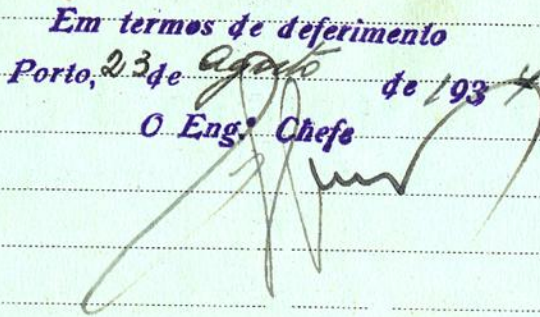 Em termos de deferimento
Porto, 23 de agosto de 1934
O Eng.º Chefe